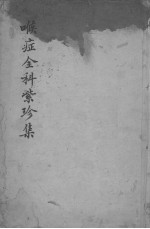 喉症全科紫珍集